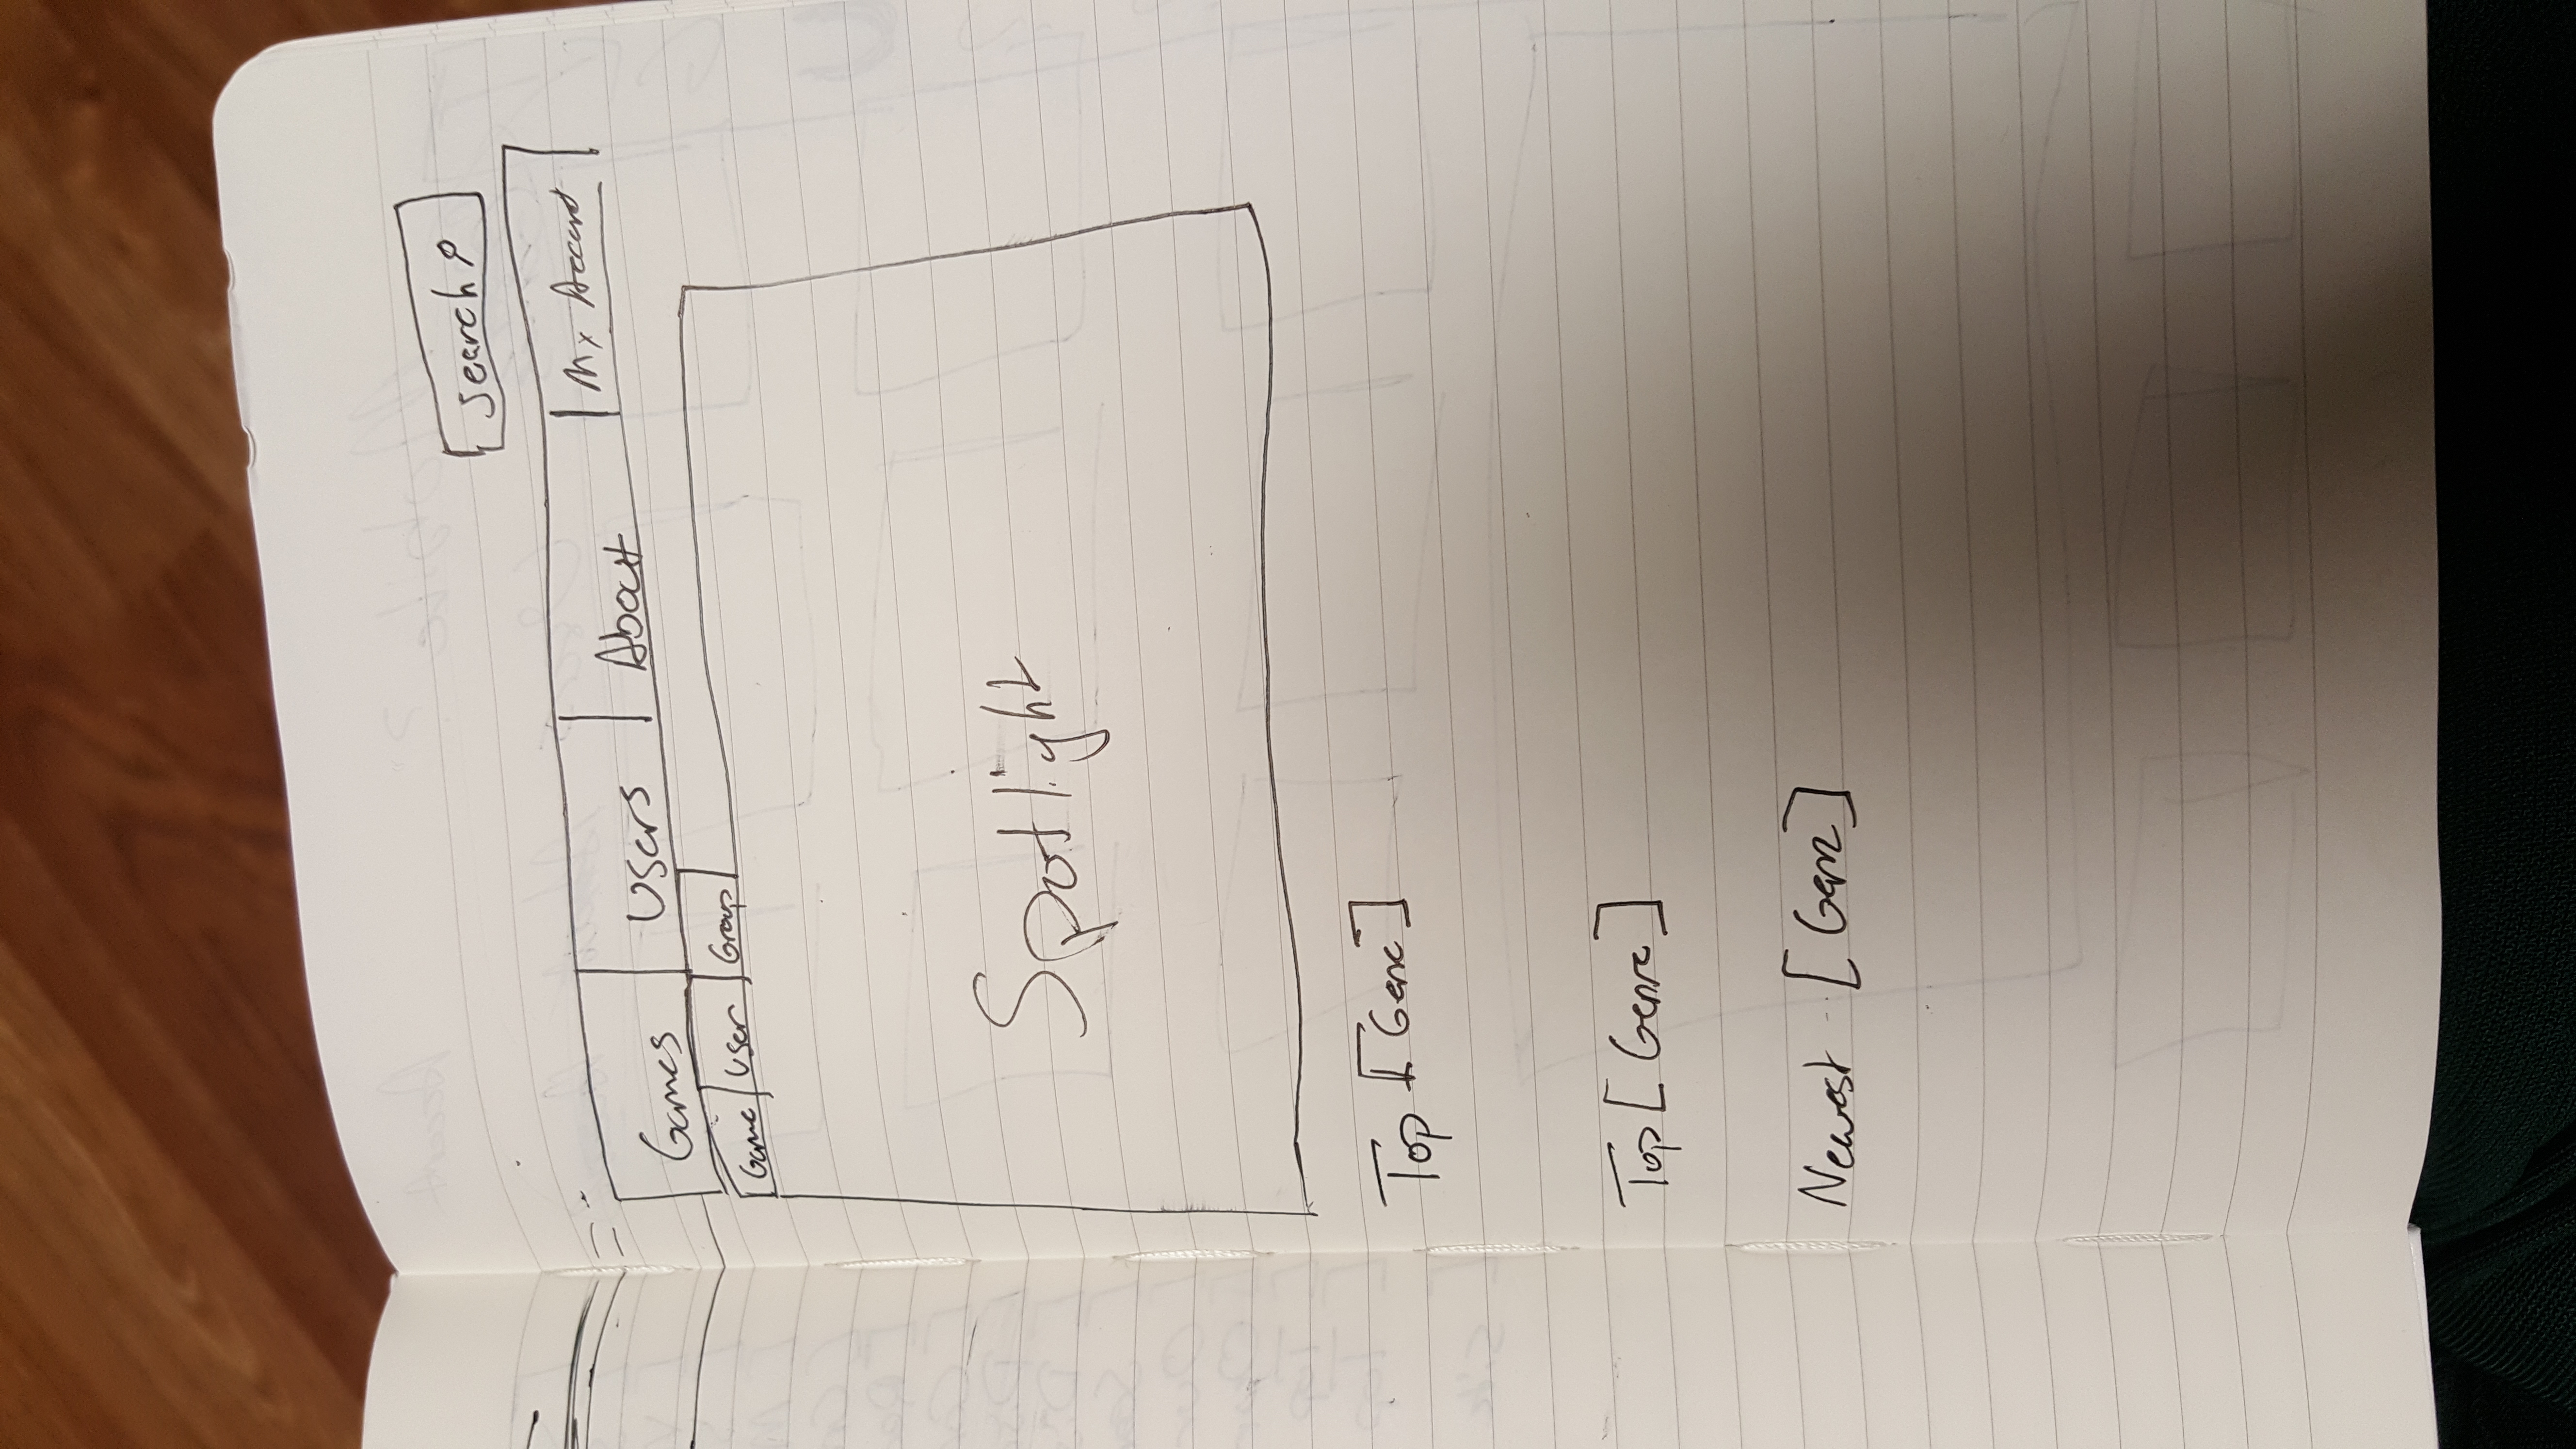 Search
Games Users About My Account
Game User Group
Spotlight
Top [Genre]
Top [Genre]
Newest [Genre]